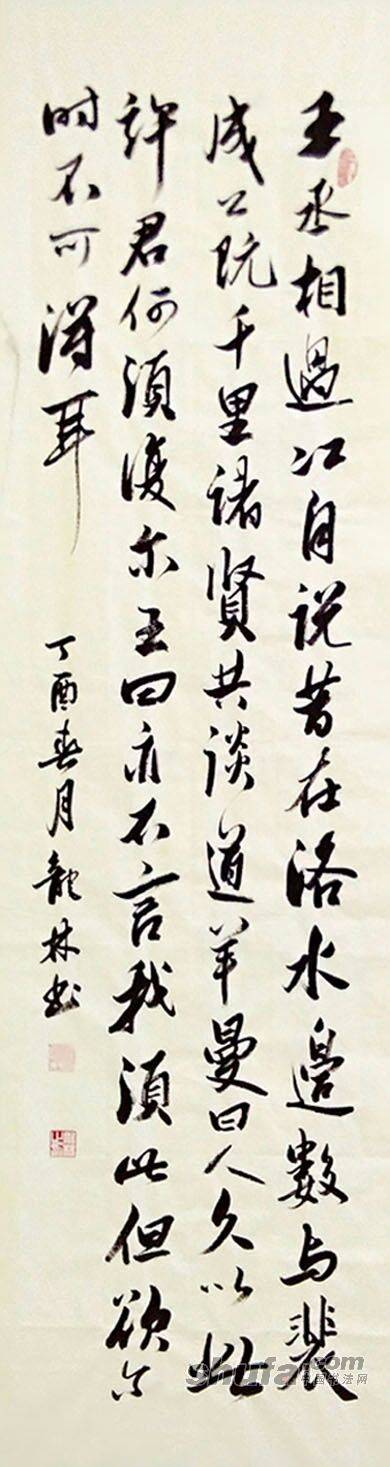 王丞相過江自説昔在洛水邊數与裴
成公阮千里諸賢共談道羊曼曰人久以此
許君何須復尓王曰亦不言我須此但欲尓
时不可得耳
丁酉春月龍林书
shufa.com
中国书法网